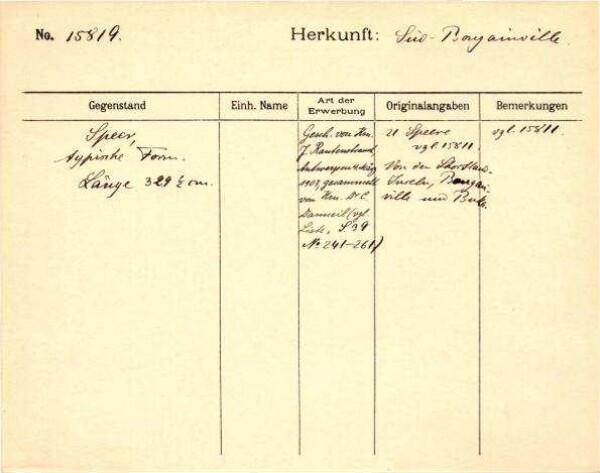 No. 15819.
Herkunft: Süd-Bougainville.
Gegenstand
Einh. Name
Art der
Erwerbung
Originalangaben
Bemerkungen
Speer,
typische Form.
Länge 329 ½ cm.
Gesch. von Hrn.
J. Rautenstrauch,
Antwerpen
1903, gesammelt
von Hrn. Dr. C.
Danneil (vgl.
Liste, S. 39
No 241-261)
21 Speere
vgl. 15811.
Von den Shortland-
Inseln, Bougain-
ville und Buka.
vgl. 15811.